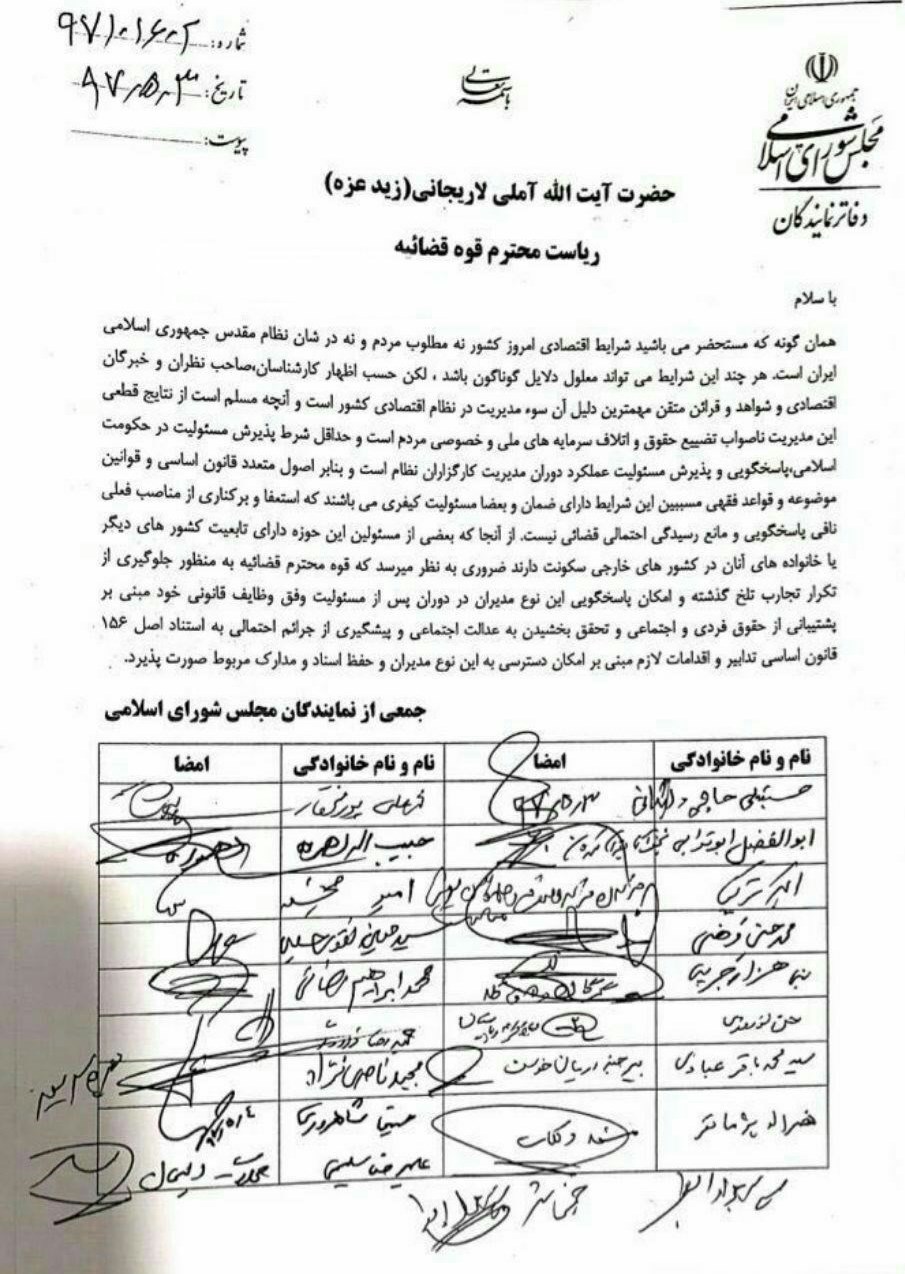 جمهوری اسلامی ایران
مجلس شورای اسلامی
دفاتر نمایندگان
باسمه تعالی
شماره:
تاریخ: ۹۷،۵،۳
پیوست:
حضرت آیت الله آملی لاریجانی(زید عزه)
ریاست محترم قوه قضائیه
با سلام
همان گونه که مستحضر می باشید شرایط اقتصادی امروز کشور نه مطلوب مردم و نه در شان نظام مقدس جمهوری اسلامی
ایران است. هر چند این شرایط می تواند معلول دلایل گوناگون باشد ، لکن حسب اظهار کارشناسان،صاحب نظران و خبرگان
اقتصادی و شواهد و قرائن متقن مهمترین دلیل آن سوء مدیریت در نظام اقتصادی کشور است و آنچه مسلم است از نتایج قطعی
این مدیریت ناصواب تضییع حقوق و اتلاف سرمایه های ملی و خصوصی مردم است و حداقل شرط پذیرش مسئولیت در حکومت
اسلامی،پاسخگویی و پذیرش مسئولیت عملکرد دوران مدیریت کارگزاران نظام است و بنابر اصول متعدد قانون اساسی و قوانین
موضوعه و قواعد فقهی مسببین این شرایط دارای ضمان و بعضا مسئولیت کیفری می باشند که استعفا و برکناری از مناصب فعلی
نافی پاسخگویی و مانع رسیدگی احتمالی قضائی نیست. از آنجا که بعضی از مسئولین این حوزه دارای تابعیت کشور های دیگر
یا خانواده های آنان در کشور های خارجی سکونت دارند ضروری به نظر میرسد که قوه محترم قضائیه به منظور جلوگیری از
تکرار تجارب تلخ گذشته و امکان پاسخگویی این نوع مدیران در دوران پس از مسئولیت وفق وظایف قانونی خود مبنی بر
پشتیبانی از حقوق فردی و اجتماعی و تحقق بخشیدن به عدالت اجتماعی و پیشگیری از جرائم احتمالی به استناد اصل ۱۵۶
قانون اساسی تدابیر و اقدامات لازم مبنی بر امکان دسترسی به این نوع مدیران و حفظ اسناد و مدارک مربوط صورت پذیرد.
جمعی از نمایندگان مجلس شورای اسلامی
نام و نام خانوادگی امضا نام و نام خانوادگی امضا
حسینعلی حاجی دلیگانی ۹۷،۵،۳
ابوالفضل ابوترابی حبیب اله
اکبر ترکی امیر خجسته
سید حسین نقوی حسینی
نبی هزارجریبی محمد ابراهیم رضائی
حسن نوروزی
سید محمد باقر عبادی بیرجند مجید ناصری نژاد
نصراله پژمانفر مشهد و کلات
علیرضا سلیمی محلات و دلیجان